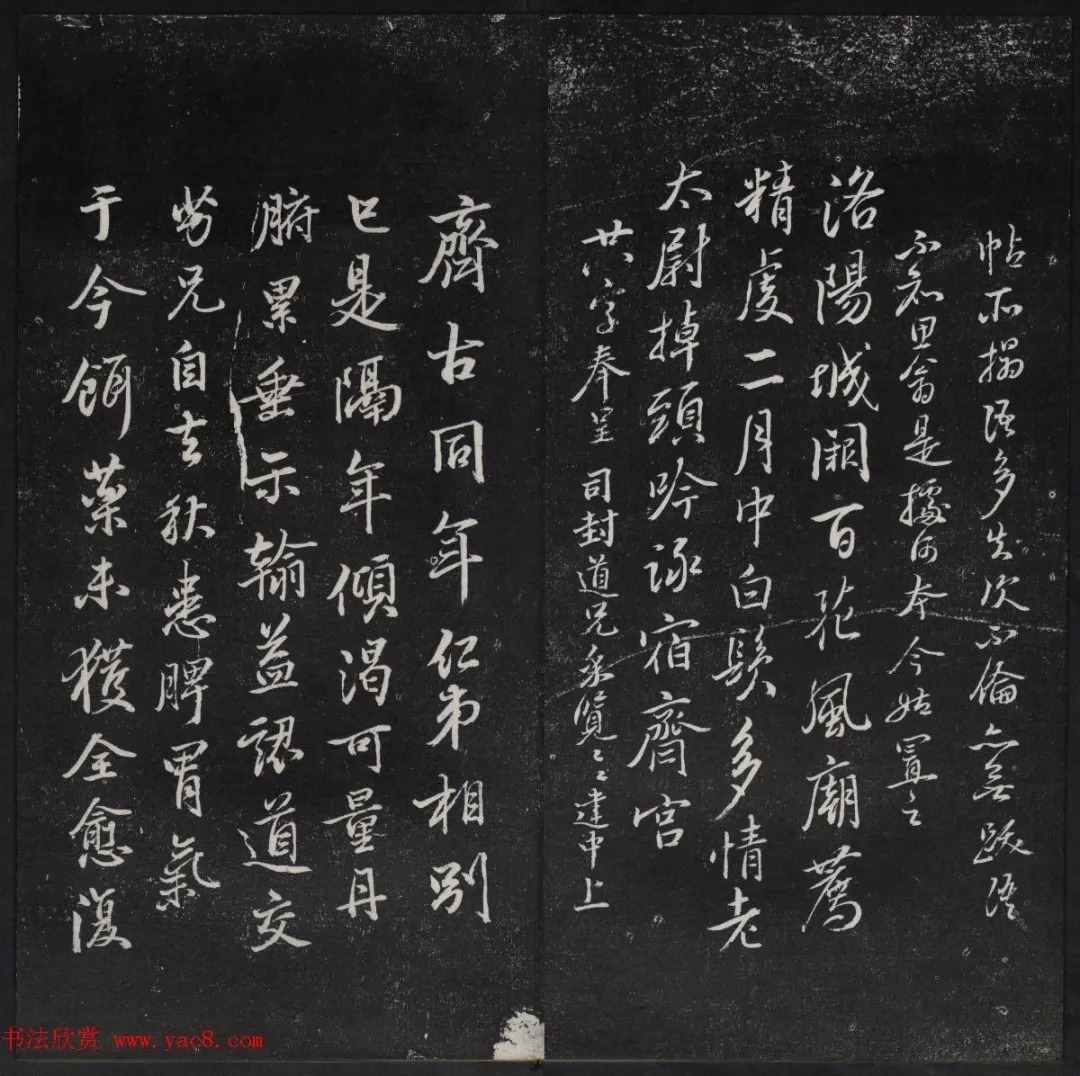 帖所搨语多失次不倫亦無跋语
不知思翁是據何本今姑置之
洛陽城闕百花風廟薦
精虔二月中白鬚多情老
太尉掉頭吟諑宿齊宮
廿八字奉呈司封道兄垂覽〻建中上
齊古同年仁弟相別
已是隔年傾渴可量丹
腑累垂示翰益認道交
劣兄自去秋患脾胃氣
于今餌藥未獲全愈復
书法欣赏 www.yac8.com